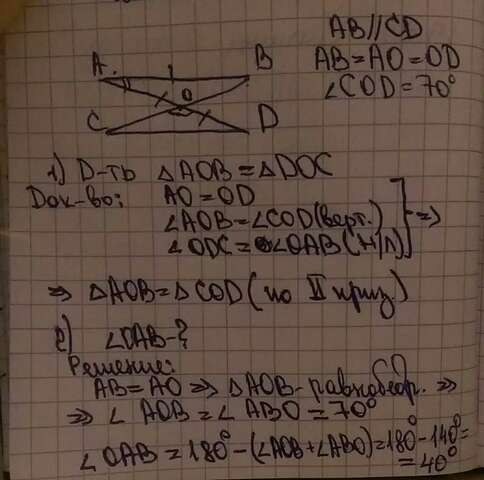 AB//CD
AB=AO=OD
∠COD=70°
A B
O
C D
1) Д-ть △AOB=△DOC
Док-во: AO=OD
∠AOB=∠COD(верт.)
∠ODC=∠OAB(н/л)
⇒
⇒ △AOB=△COD(по II приз.)
2) ∠OAB-?
Решение:
AB=AO ⇒ △AOB-равнобедр. ⇒
⇒ ∠AOB=∠ABO=70°
∠OAB=180°-(∠AOB+∠ABO)=180°-140°=
=40°